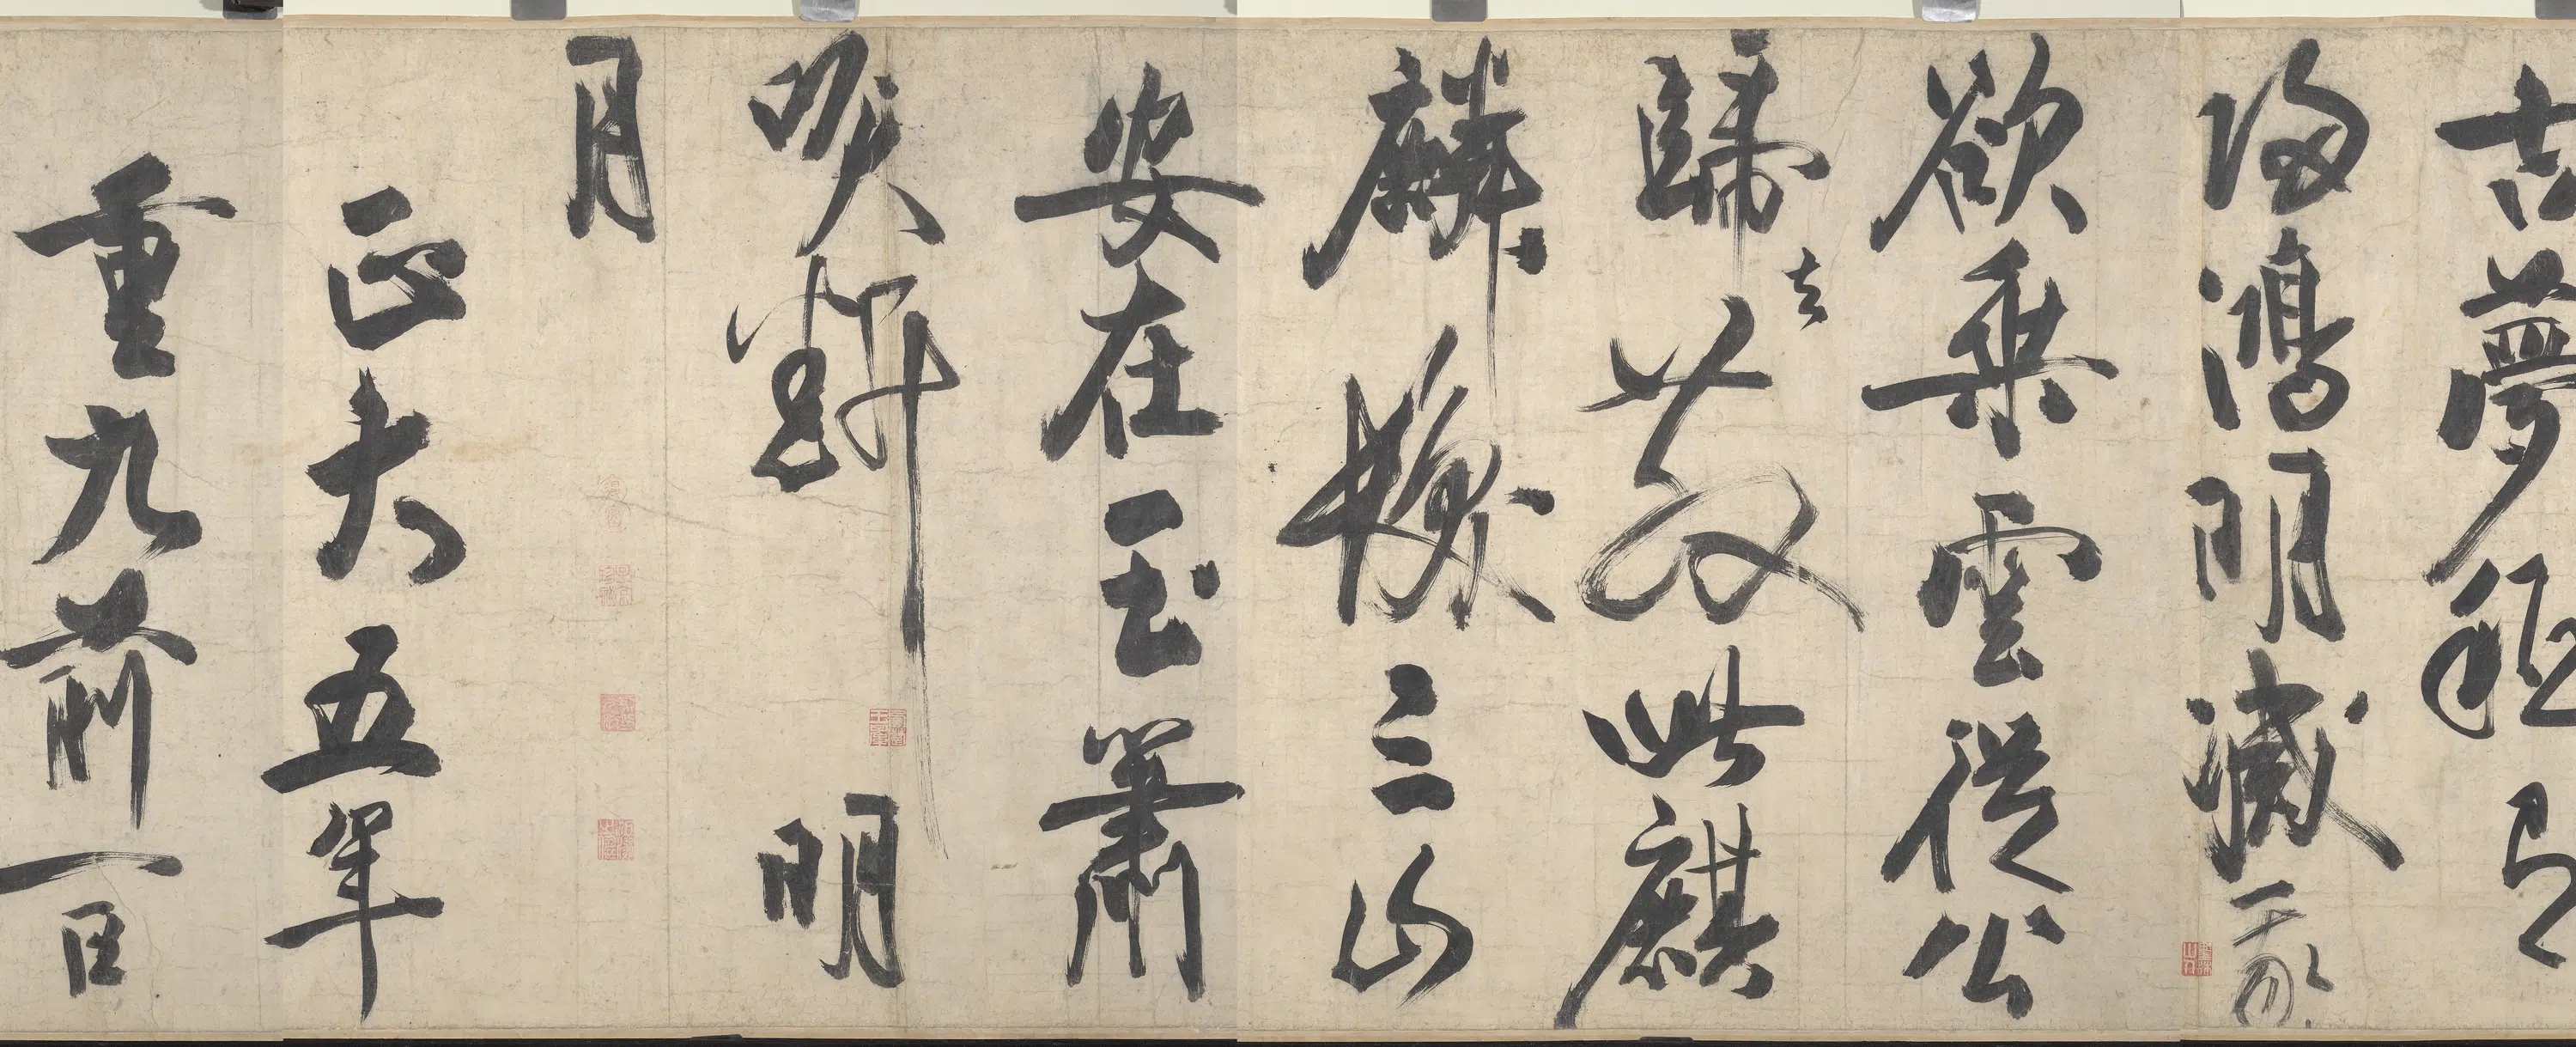 古夢秖有
歸鴻明滅我
欲乘雲從公
歸去散此麒
麟髮三山
安在玉簫
吹斷明
月
正大五年
重九前一日